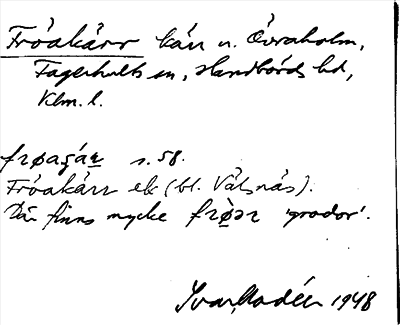 Fröakärr kärr u. Övraholm,
Fagerhults sn, Handbörds hd,
Klm. l.
s. 58.
Fröakärr ek (bl. Vålsnäs).
Där finns mycke 'grodor'.
Ivar Modéer 1948